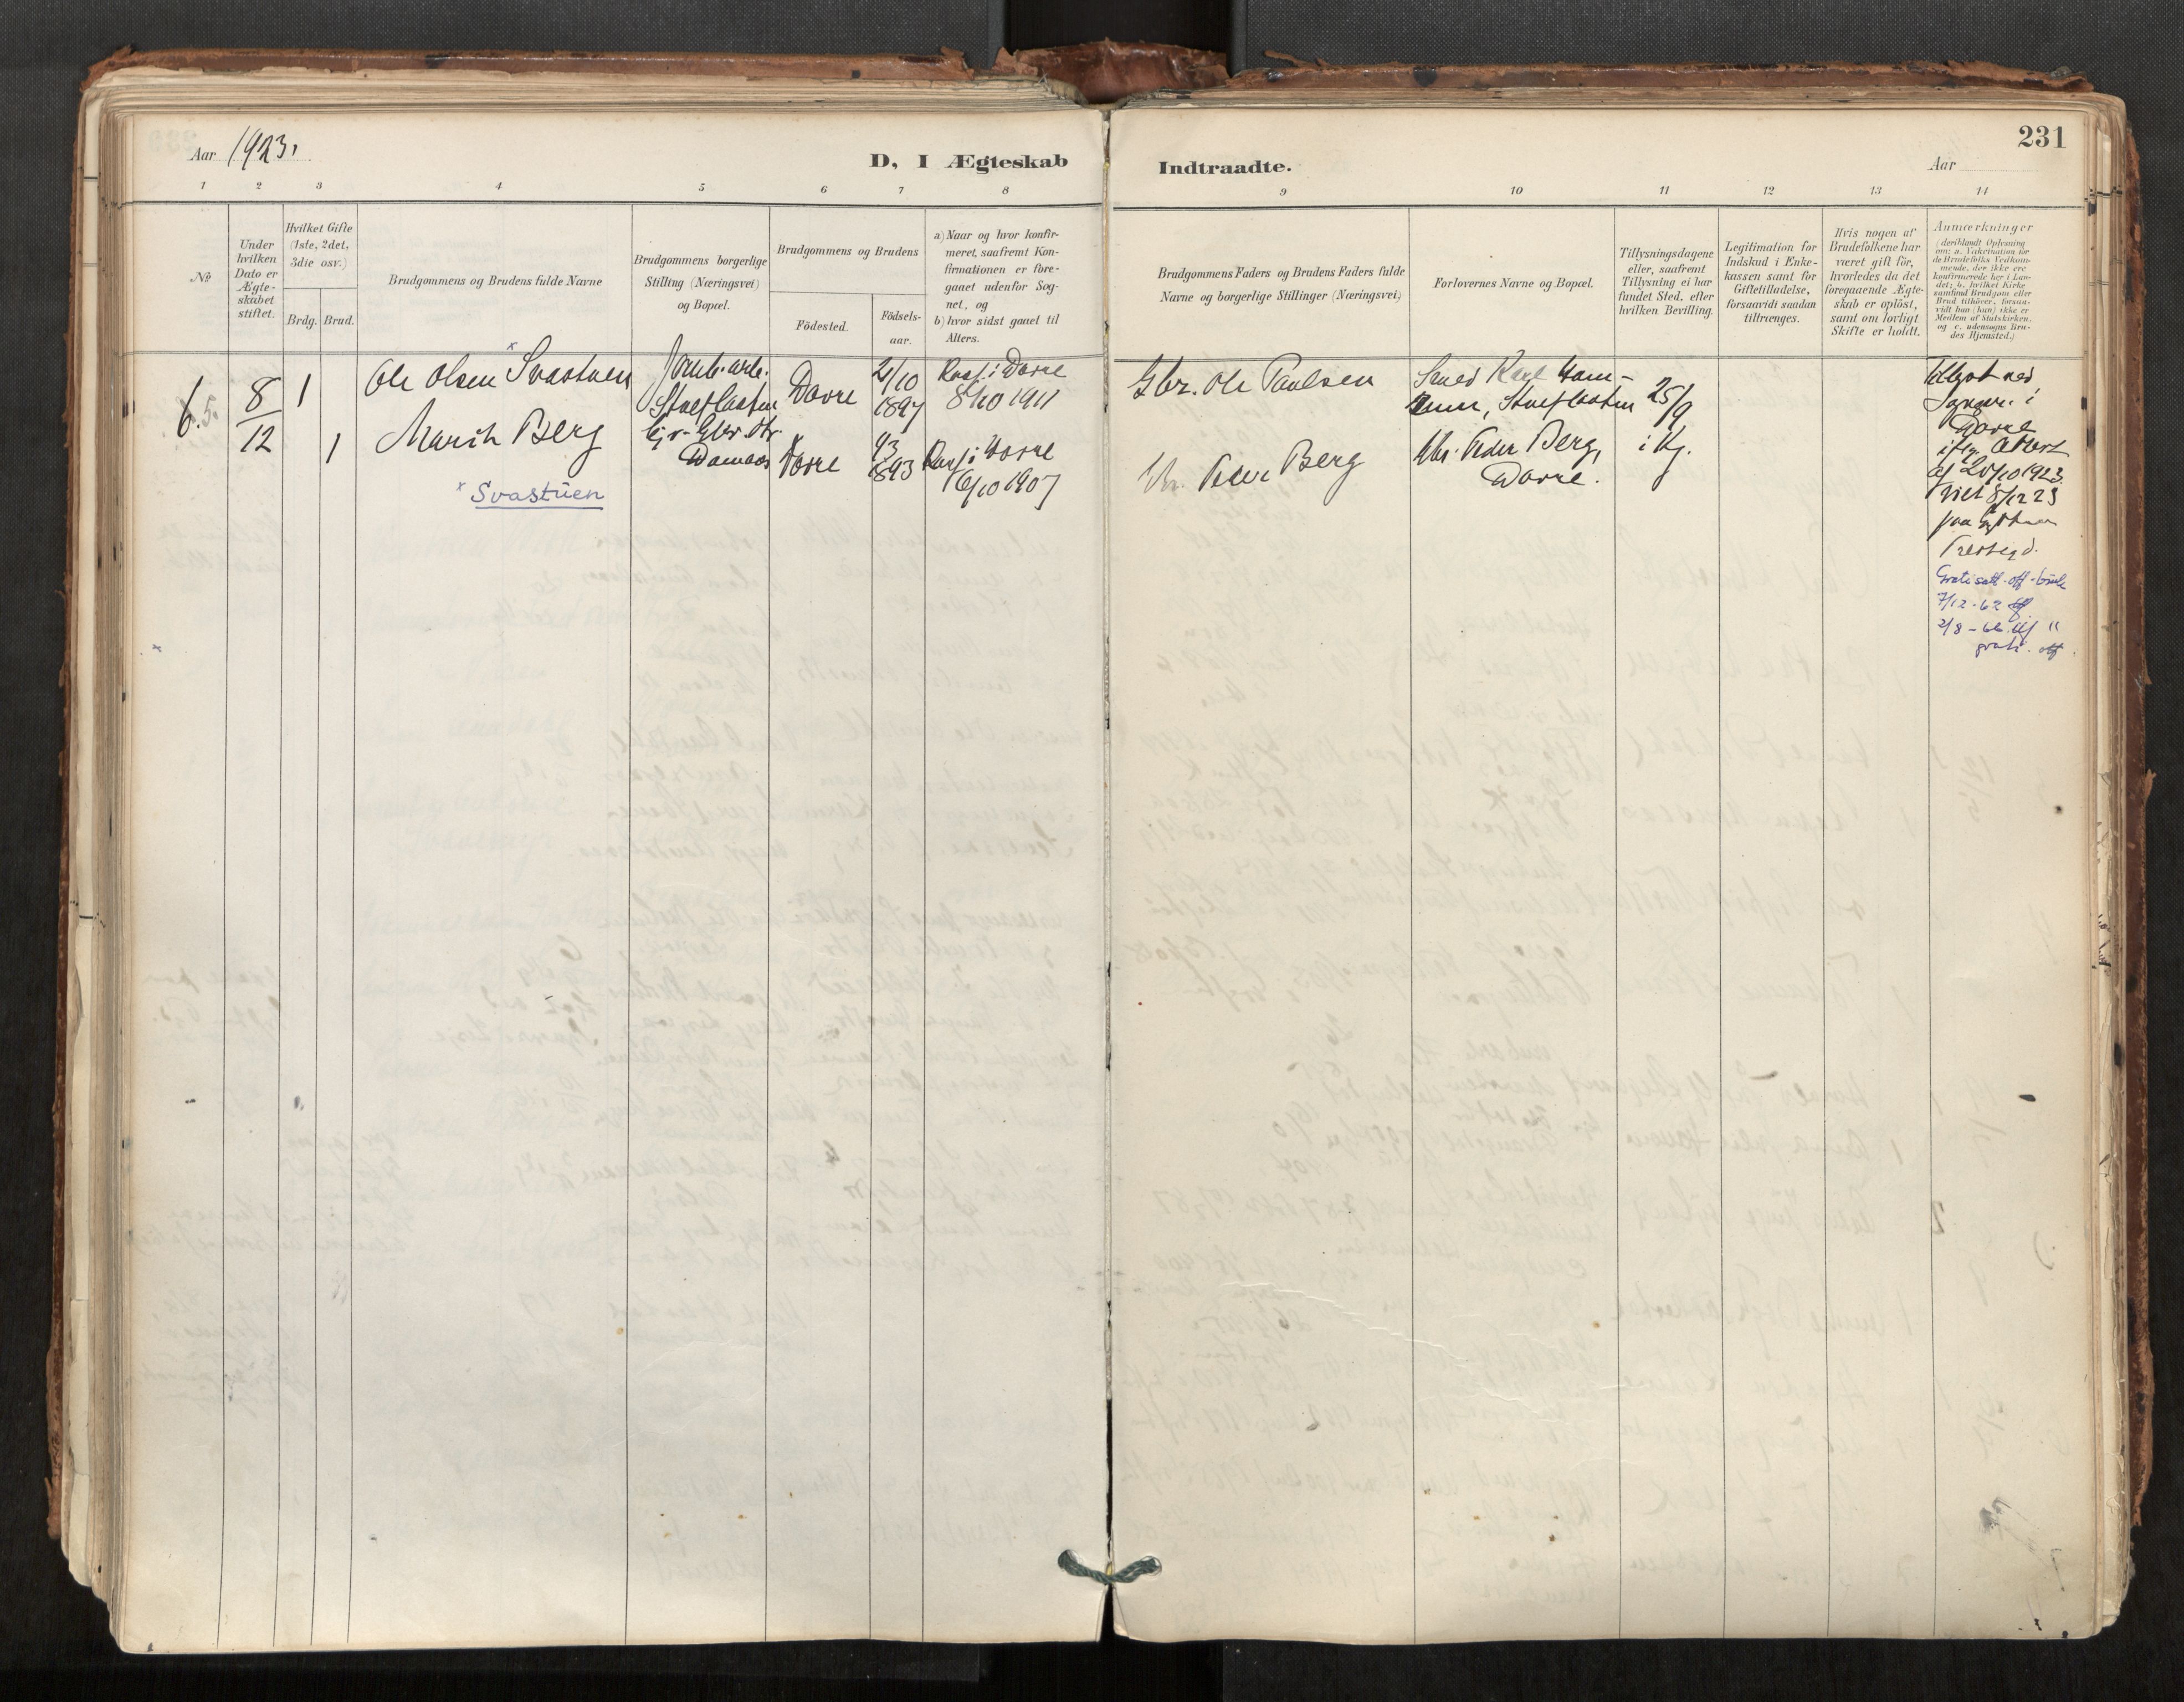 Aar 1923.
D, I Ægteskab
Indtraadte.
Aar
231
1 2 3 4 5 6 7 8 9 10 11 12 13 14
No
Under
hvilken
Dato er
Ægte-
skabet
stiftet.
Hvilket Gifte
(1ste, 2det,
3die osv.)
Brdg. Brud.
Brudgommens og Brudens fulde Navne
Brudgommens borgerlige
Stilling (Næringsvei)
og Bopæl.
Brudgommens og Brudens
Födested.
Födsels-
aar.
a) Naar og hvor konfir-
meret, saafremt Kon-
firmationen er fore-
gaaet udenfor Sog-
net, og
b) hvor sidst gaaet til
Alters.
Brudgommens Faders og Brudens Faders fulde
Navne og borgerlige Stillinger (Næringsvei)
Forlovernes Navne og Bopæl.
Tillysningsdagene
eller, saafremt
Tillysning ei har
fundet Sted, efter
hvilken Bevilling.
Legitimation for
Indskud i Enke-
kassen samt for
Giftetilladelse,
forsaavidt saadan
tiltrænges.
Hvis nogen af
Brudefolkene har
været gift för,
hvorledes da det
foregaaende Ægte-
skab er oplöst,
samt om lovligt
Skifte er holdt.
Anmærkninger
(deriblandt Oplysning
om: a. Vakcination for
de Brudefolks Vedkom-
mende, der ikke ere
konfirmerede her i Lan-
det; b. hvilket Kirke-
samfund Brudgom eller
Brud tilhörer, forsaa-
vidt han (hun) ikke er
Medlem af Statskirken,
og c. udensogns Bru-
des Hjemsted.)
6. 8/12 1
Ole Olsen Svastuen
Jernb. arb.
Dovre
2/10
1897
Konf. i Dovre
8/10 1911
Gbr. Ole Paulsen
Karl
25/9
i Kj.
1
Marith Berg
Dovre
1893
Konf. i Dovre
6/10 1907
Peder Berg
Peder Berg,
Dovre.
x Svastuen
i
Dovre
af 20/10 1923.
Viet 8/12 23
7/12 - 62
2/8 - 66 "